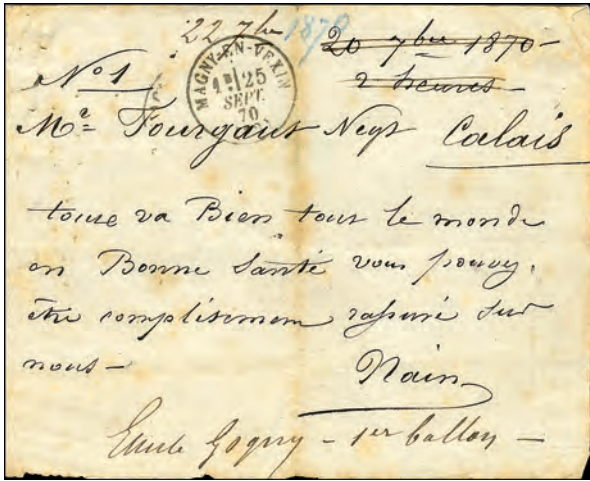 22 7bre 1870
20 7bre 1870-
2 heures-
No 1
MAGNY-EN-VEXIN
1E 25
SEPT.
70
Mr Fourgaut Negt Calais
toute va Bien tout le monde
en Bonne Santé vous pouvez
être complètement rassuré sur
nous-
Nain
Emile - 1er ballon -